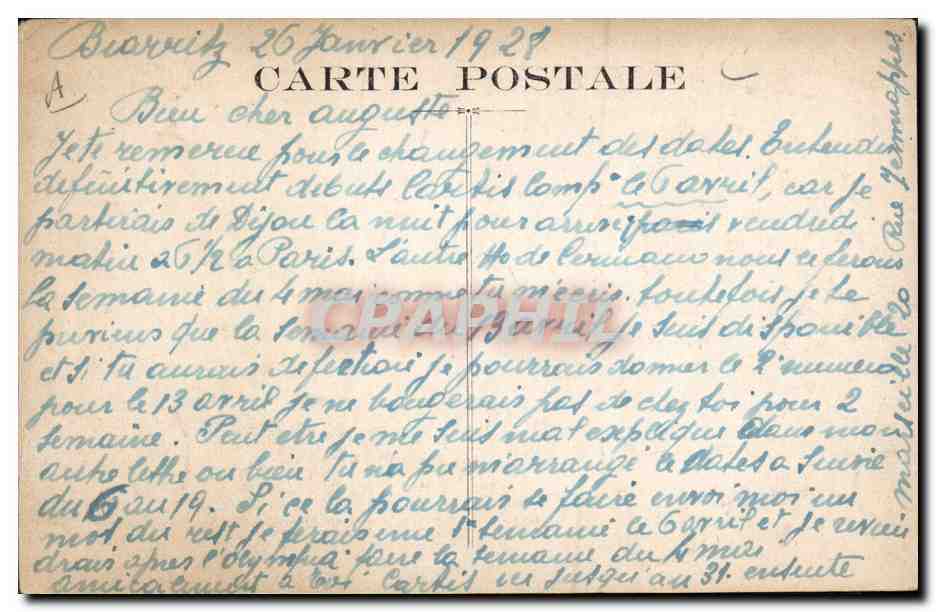 Biarritz 26 Janvier 1928
CARTE POSTALE
A
Bien cher auguste
Je te remercie pour le changement des dates. Entendu
definitivement debuts Cartis Comp. le 6 avril, car je
partirais de Dijon la nuit pour arrive paris vendredi
matin a 6 1/2 a Paris. L'autre No de Germano nous le ferons
la semaine du 4 mai comme tu m'ecris. toutefois je te
previens que la semaine du 13 avril, je suis disponible
et si tu aurais defection je pourrais donner le 2e numero
pour le 13 avril je ne bougerais pas de chez toi pour 2
semaine. Peut etre je me suis mal explique dans mon
autre lettre ou bien tu n'a pu m'arrange le dates a suivre
du 6 au 19. Si ce la pourrais se faire envoi moi un
mot du rest je ferais une 1re semaine le 6 avril et je revien
drais apres l'olympia faire la semaine du 4 mai
amicalement a toi Cartis in jusqu'au 31. ensuite
marseille 20 Rue Jemmapes
CPAPHIL